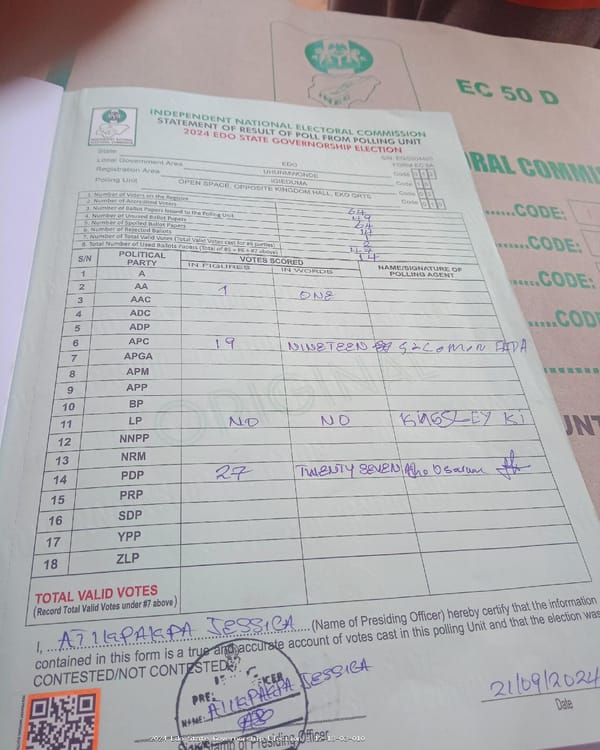 EC 50 D
INDEPENDENT NATIONAL ELECTORAL COMMISSION
STATEMENT OF RESULT OF POLL FROM POLLING UNIT
2024 EDO STATE GOVERNORSHIP ELECTION
FORM EC 8A
State EDO Code
Local Government Area UHUNMWONDE Code
Registration Area IGIEDUMA Code
Polling Unit OPEN SPACE, OPPOSITE KINGDOM HALL, EKO ORTS Code
1. Number of Voters on the Register 64
2. Number of Accredited Voters 49
3. Number of Ballot Papers Issued to the Polling Unit 64
4. Number of Unused Ballot Papers
5. Number of Spoiled Ballot Papers
6. Number of Rejected Ballots 2
7. Number of Total Valid Votes (Total Valid Votes cast for all parties) 47
8. Total Number of Used Ballots Papers (Total of #5 + #6 + #7 above)
S/N POLITICAL PARTY VOTES SCORED NAME/SIGNATURE OF POLLING AGENT
IN FIGURES IN WORDS
1 A
2 AA 1 ONE
3 AAC
4 ADC
5 ADP
6 APC 19 NINETEEN
7 APGA
8 APM
9 APP
10 BP
11 LP NO NO KINGSLEY
12 NNPP
13 NRM
14 PDP 27 TWENTY SEVEN
15 PRP
16 SDP
17 YPP
18 ZLP
ORIGINAL
TOTAL VALID VOTES
(Record Total Valid Votes under #7 above)
I, JESSICA (Name of Presiding Officer) hereby certify that the information
contained in this form is a true and accurate account of votes cast in this polling Unit and that the election was
CONTESTED/NOT CONTESTED.
JESSICA
NAME:
21/09/2024
Date
Stamp of Presiding Officer
RAL COMMIS
CODE:
CODE:
CODE:
COD
UNT